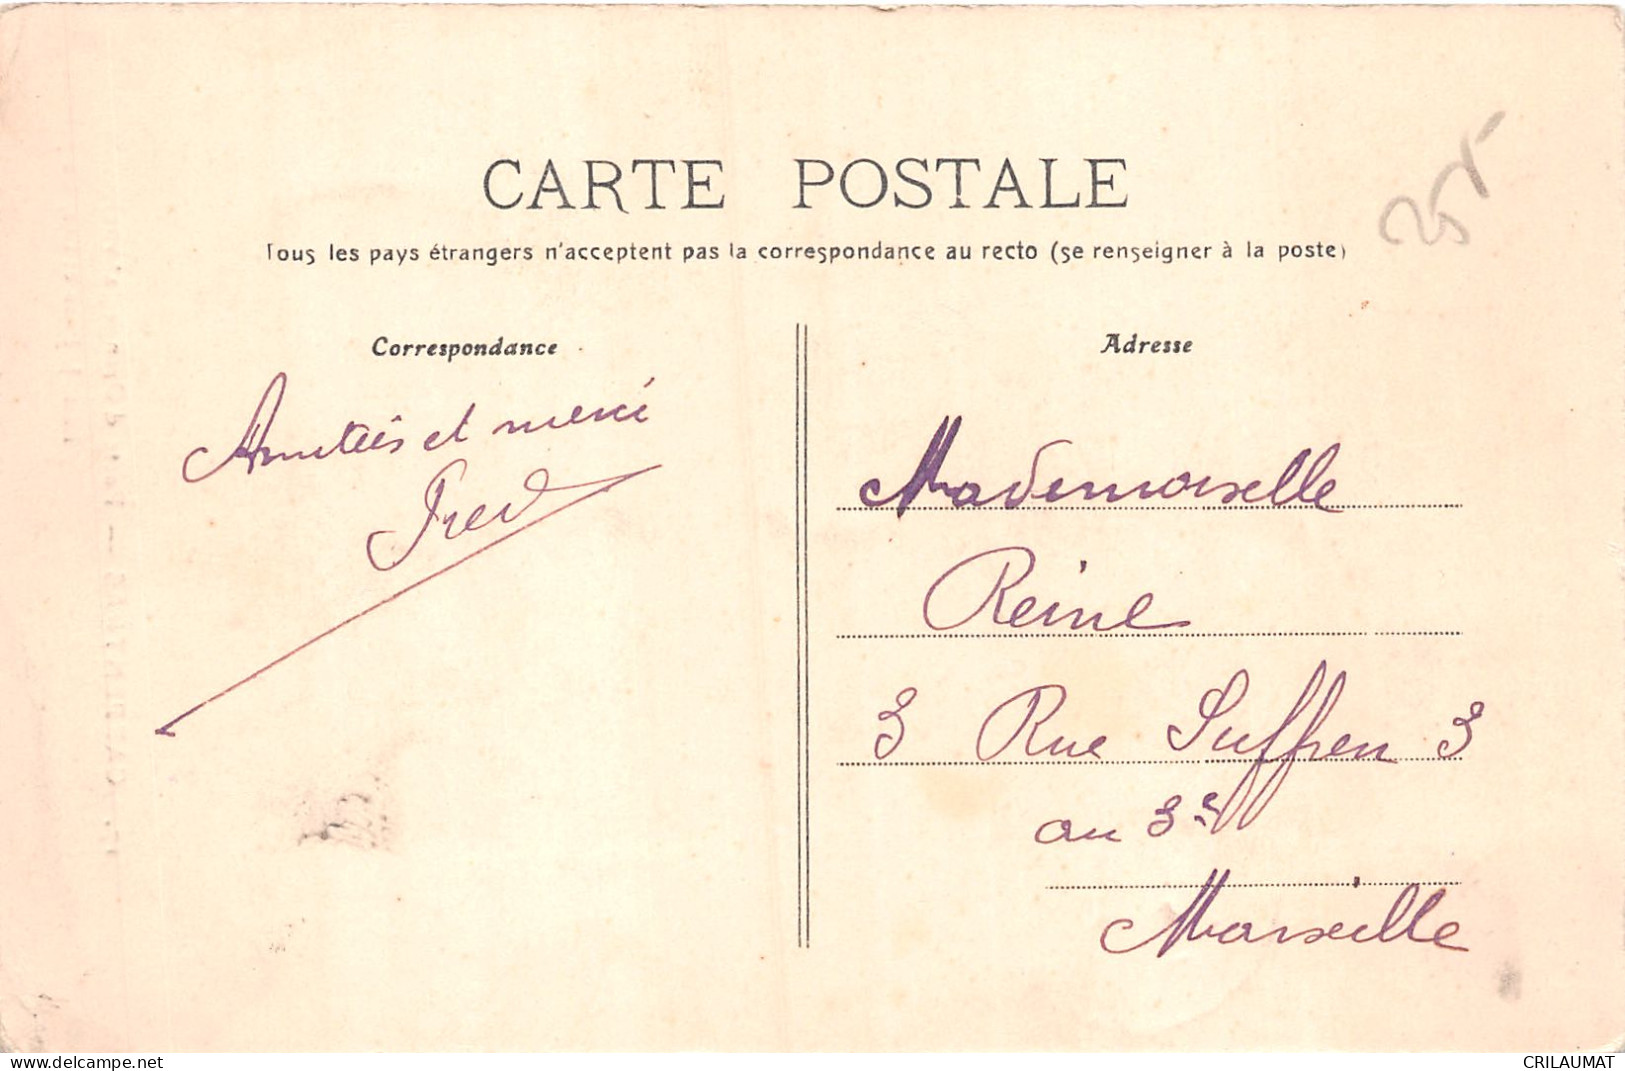 CARTE POSTALE
Tous les pays étrangers n'acceptent pas la correspondance au recto (se renseigner à la poste)
25
Correspondance
Amitiés et merci
Fred
Adresse
Mademoiselle
Reine
3 Rue Suffren 3
au 3e
Marseille
www.delcampe.net
CRILAUMAT